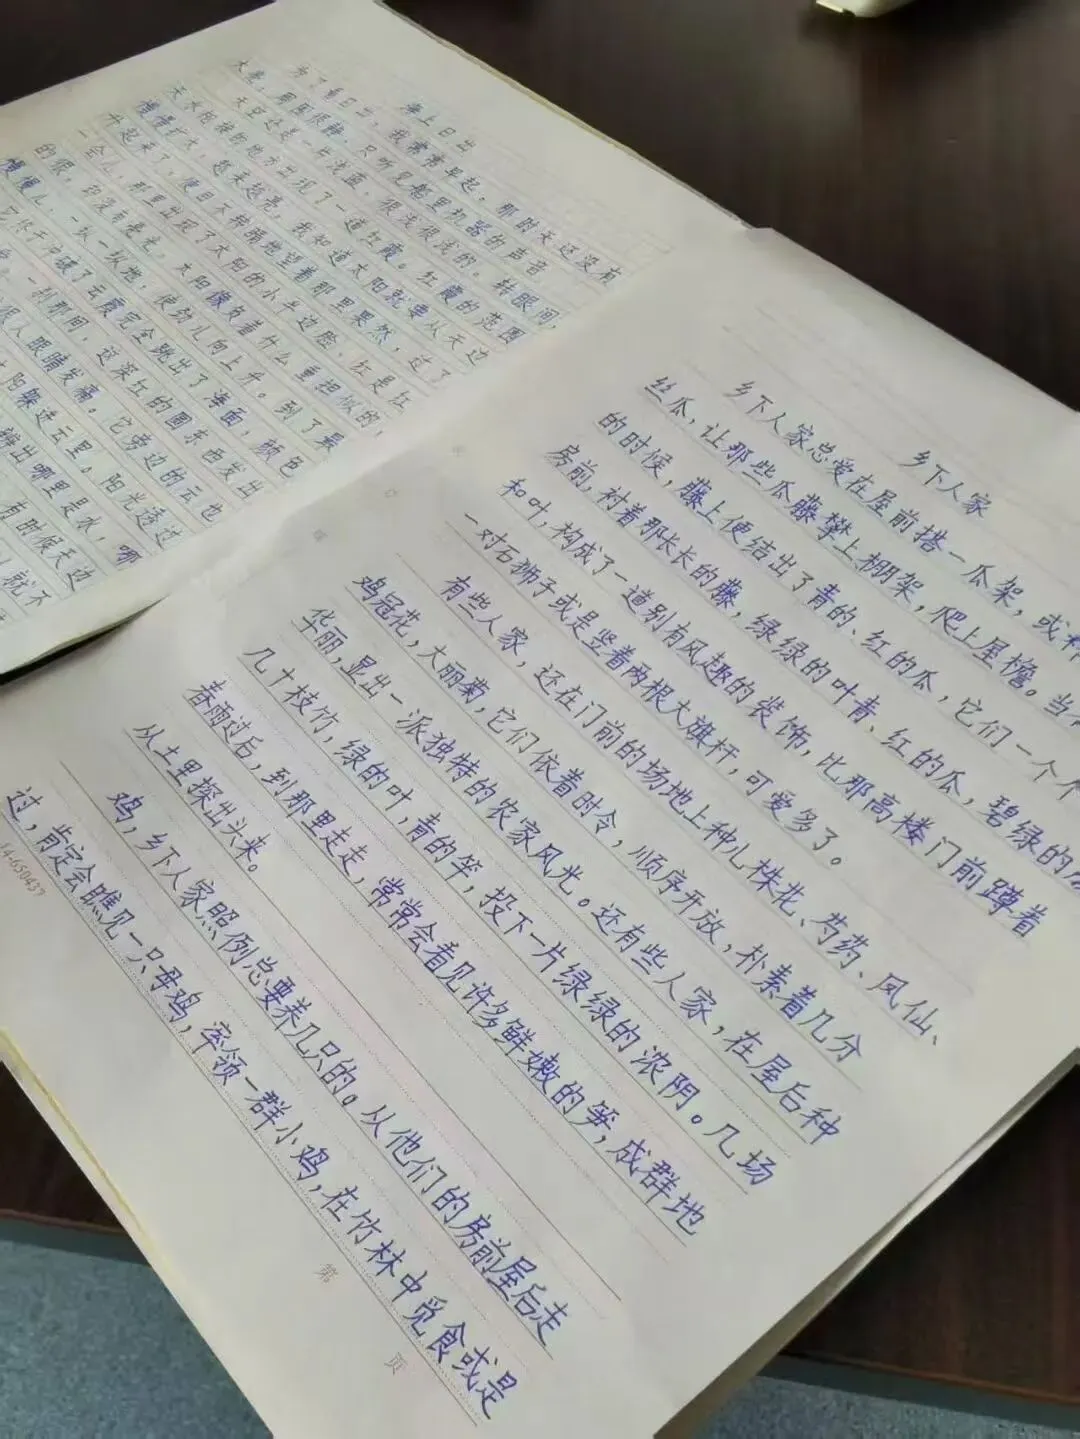 海上日出
为了看日出，我常常早起。那时天还没有
大亮，周围很静，只听见船里机器的声音
天空还是一片浅蓝，很浅很浅的。转眼间，
天水相接的地方出现了一道红霞。红霞的范围
慢慢扩大，越来越亮。我知道太阳就要从天边
升起来了，便目不转睛地望着那里果然，过了
一会儿，那里出现了太阳的小半边脸，红是红
的很，却没有亮光。太阳像负着什么重担似的，
慢慢儿，一纵一纵地，使劲儿向上升。到了最
它终于冲破了云霞完全跳出了海面，颜色
一刹那间，这深红的圆东西发出
人眼睛发痛。它旁边的云也
阳躲进云里。阳光透过
辨出哪里是水，哪
有时候天边
就不
乡下人家
乡下人家总爱在屋前搭一瓜架，或种
丝瓜，让那些瓜藤攀上棚架，爬上屋檐。当
的时候，藤上便结出了青的、红的瓜，它们一个个
房前，衬着那长长的藤，绿绿的叶青、红的瓜，碧绿的
和叶，构成了一道别有风趣的装饰，比那高楼门前蹲着
一对石狮子或是竖着两根大旗杆，可爱多了。
有些人家，还在门前的场地上种几株花、芍药、凤仙、
鸡冠花，大丽菊，它们依着时令，顺序开放，朴素着几分
华丽，显出一派独特的农家风光。还有些人家，在屋后种
几十枝竹，绿的叶，青的竿，投下一片绿绿的浓阴。几场
春雨过后，到那里走走，常常会看见许多鲜嫩的笋，成群地
从土里探出头来。
鸡，乡下人家照例总要养几只的。从他们的房前屋后走
过，肯定会瞧见一只母鸡，率领一群小鸡，在竹林中觅食或是
第 页